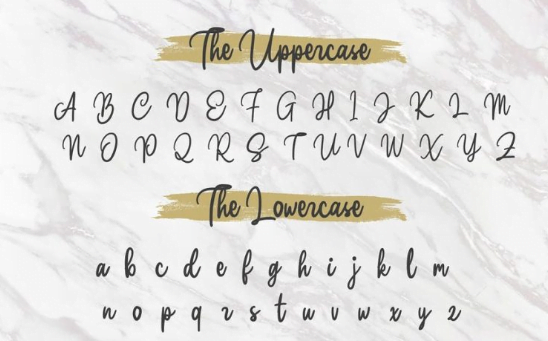 The Uppercase
A B C D E F G H I J K L M
N O P Q R S T U V W X Y Z
The Lowercase
a b c d e f g h i j k l m
n o p q r s t u v w x y z